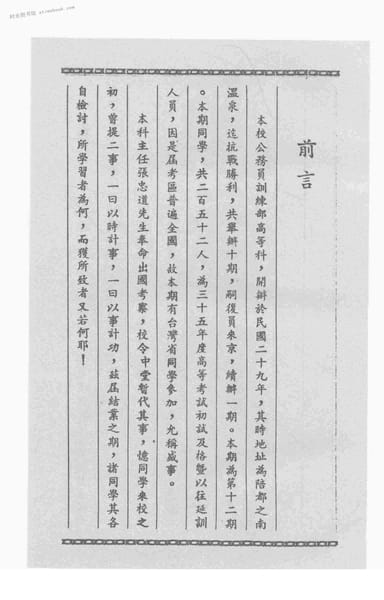 前言
本校公務員訓練部高等科，開辦於民國二十九年，其時地址為陪都之南
溫泉，迄抗戰勝利，共舉辦十期，嗣復員來京，續辦一期。本期為第十二期
。本期同學，共二百五十二人，為三十五年度高等考試初試及格暨以往延訓
人員，因是屆考區普遍全國，故本期有台灣省同學參加，尤稱盛事。
本科主任張忠道先生奉命出國考察，校令中堂暫代其事，憶同學來校之
初，曾提二事，一曰以時計事，一曰以事計功，茲屆結業之期，諸同學其各
自檢討，所學習者為何，而獲所致者又若何耶！